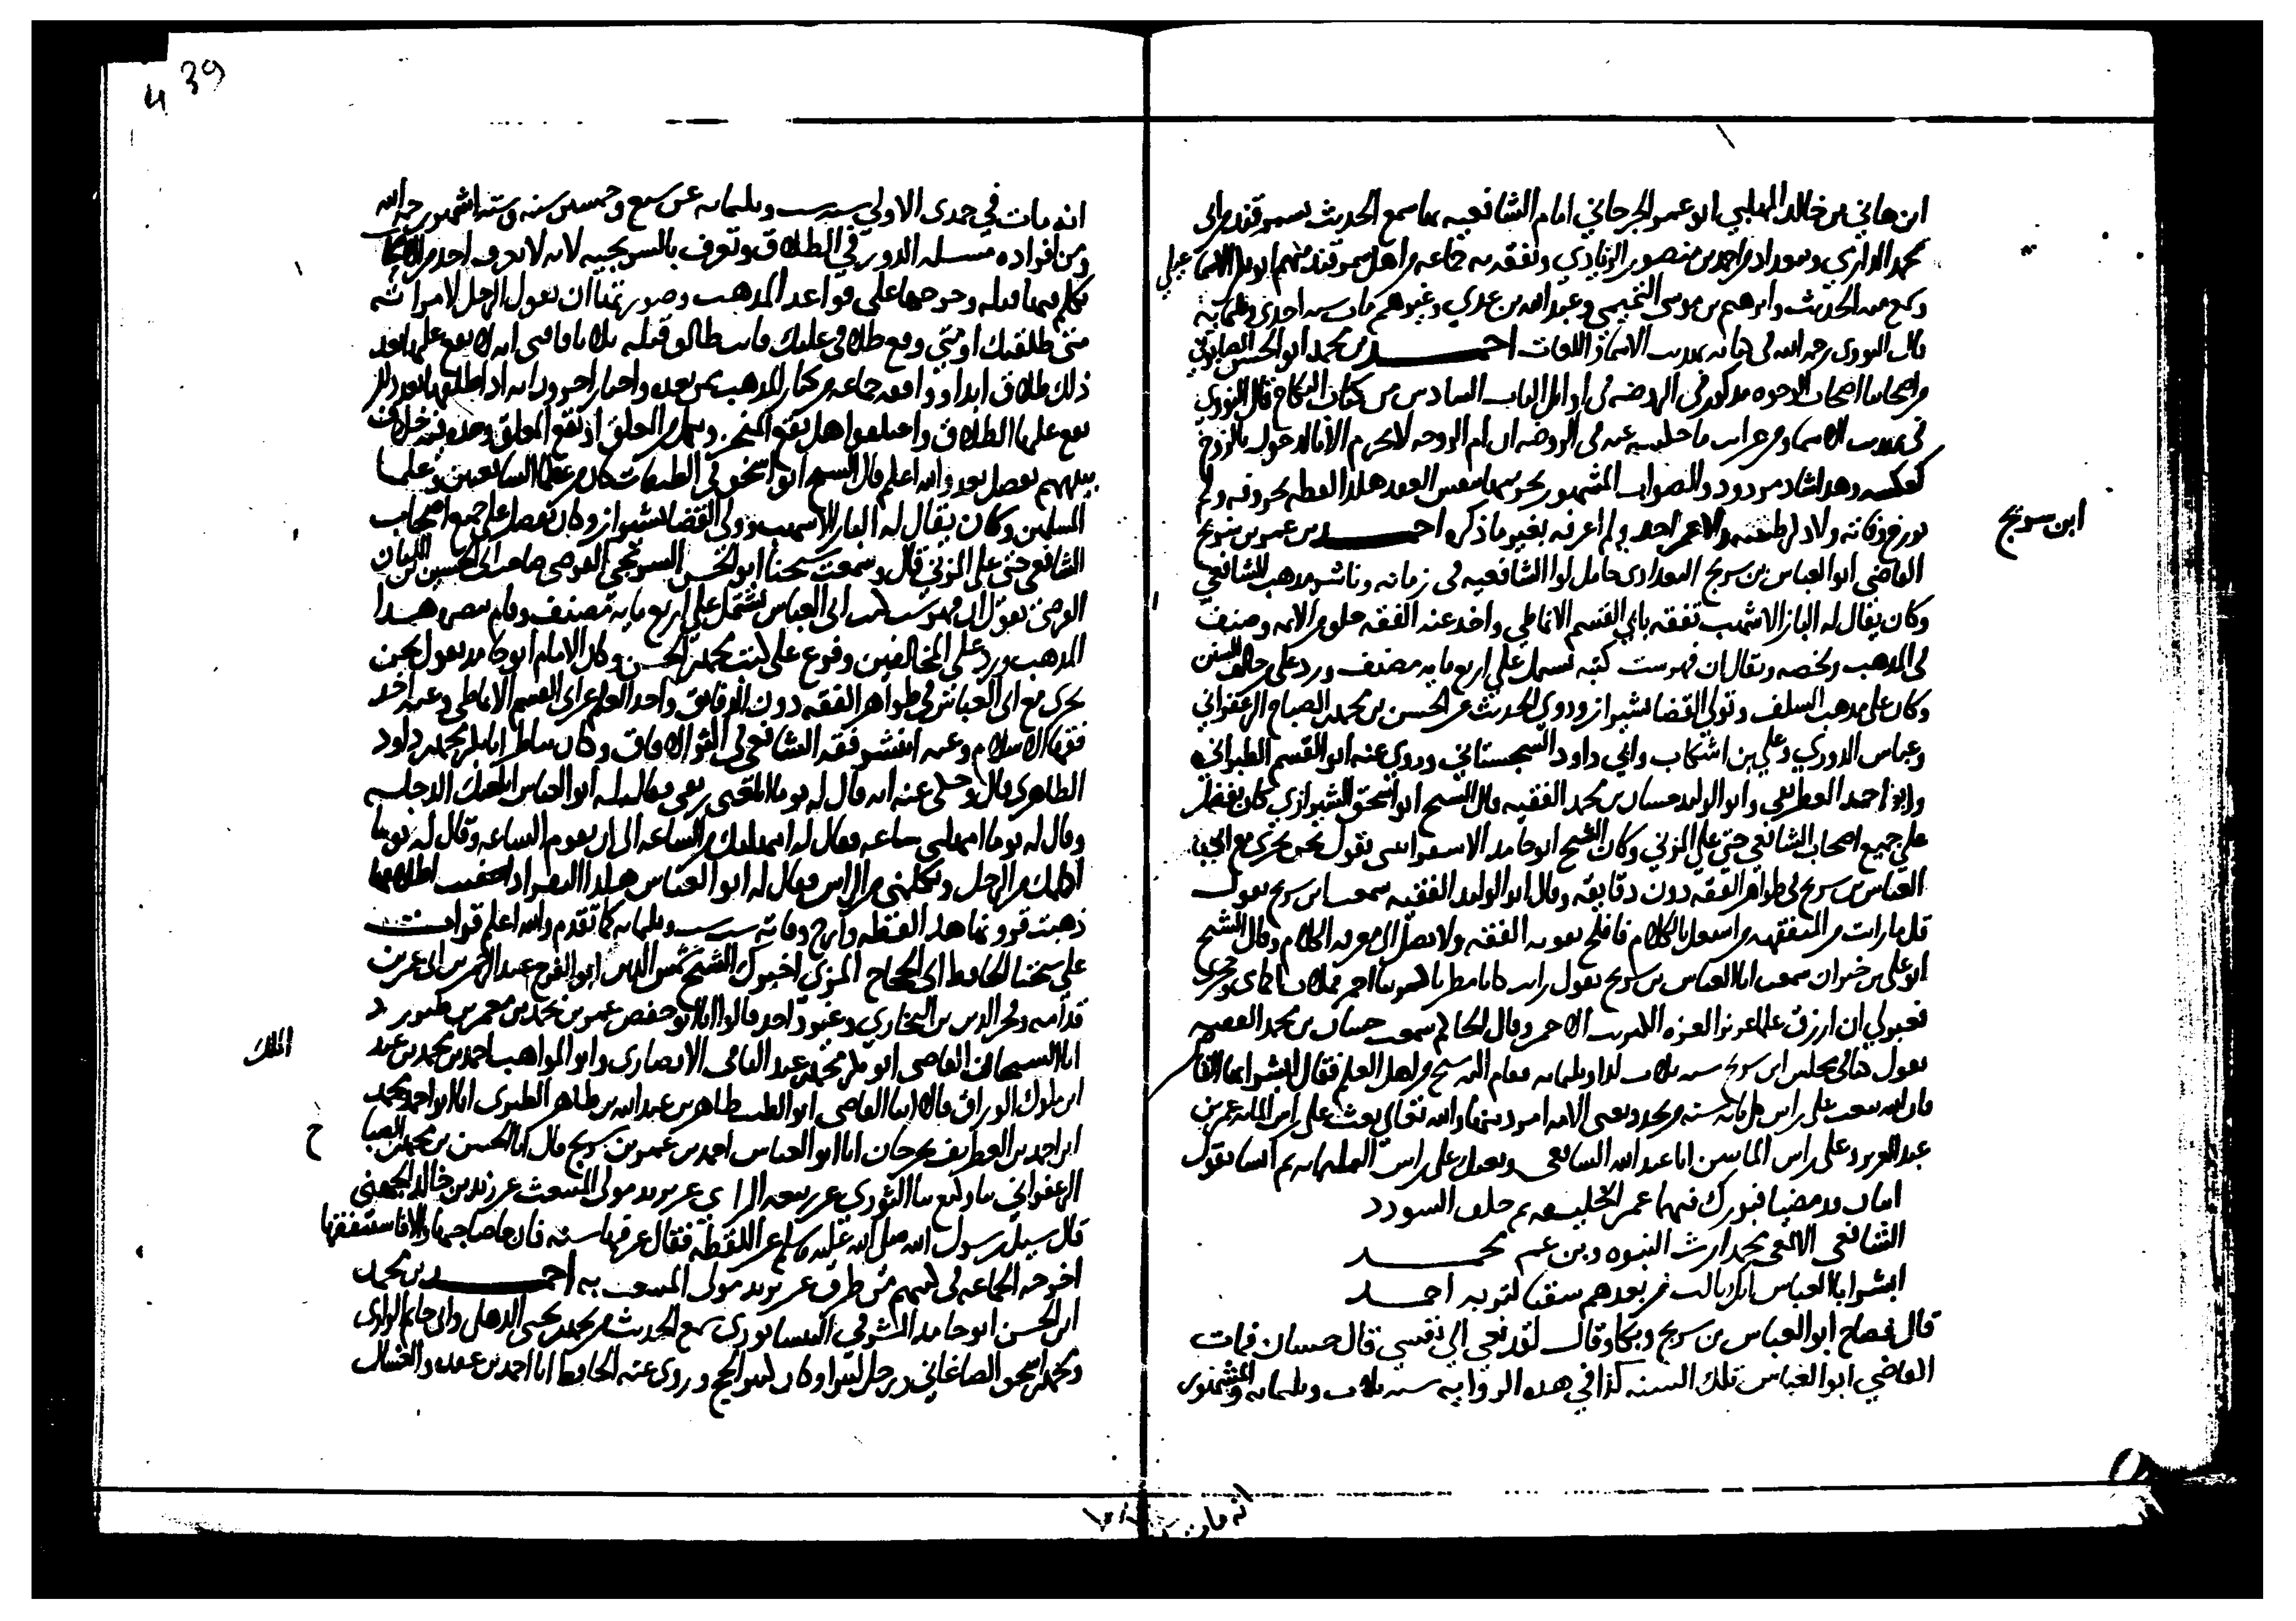 ابن هاني بن خالد المهلبي ابو عمرو الجرجاني امام الشافعيه بها سمع الحديث بسمرقند من ابي
محمد الدارمي وببغداد من احمد بن منصور الرمادي وتفقه به جماعه من اهل سمرقند منهم ابو بكر الاسماعيلي
وسمع منه الحديث وابرهيم بن موسى السهمي وعبد الله بن عدي وغيرهم مات سنه احدى وثلثمايه
قال النووي رحمه الله في كتابه تهذيب الاسماء واللغات احمد بن محمد ابو الحسن الصابوني
من اصحابنا اصحاب الوجوه مذكور في الروضه في اوايل الباب السادس من كتاب النكاح قال النووي
في تهذيب الاسما ومن غرايبه ما حكيته عنه في الروضه ان ام الزوجه لا تحرم الا بالدخول بالزوج
كعكسه وهذا شاذ مردود والصواب المشهور تحريمها بنفس العقد هذا لفظه بحروفه ولم
يورخ وفاته ولا ذكر طبقته ولا عمن اخذ ولم اعرفه بغير ما ذكره احمد بن عمر بن سريج
القاضي ابو العباس بن سريج البغدادي حامل لواء الشافعيه في زمانه وناشر مذهب الشافعي
وكان يقال له الباز الاشهب تفقه بابي القسم الانماطي واخذ عنه الفقه خلق من الايمه وصنف
في المذهب ولخصه ويقال ان فهرست كتبه تشتمل على اربع مايه مصنف ورد على مخالف السنن
وكان على مذهب السلف وتولى القضا بشيراز وروى الحديث عن الحسن بن محمد الصباح الزعفراني
وعباس الدوري وعلي بن اشكاب وابي داود السجستاني وروى عنه ابو القسم الطبراني
وابو احمد الغطريفي وابو الوليد حسان بن محمد الفقيه قال الشيخ ابو اسحق الشيرازي كان يفضل
على جميع اصحاب الشافعي حتى على المزني وكان الشيخ ابو حامد الاسفرايني يقول نحن نجري مع ابي
العباس بن سريج في ظواهر الفقه دون دقايقه وقال ابو الوليد الفقيه سمعت ابن سريج يقول
قل ما رايت من المتفقهه من اشتغل بالكلام فافلح يفوته الفقه ولا يصل الى معرفه الكلام وقال الشيخ
ابو علي بن خيران سمعت ابا العباس بن سريج يقول رايت كانا مطرنا كبريتا احمر فملات اكمامي وحجري
فعبر لي ان ارزق علما عزيزا كعزه الكبريت الاحمر وقال الحاكم سمعت حسان بن محمد الفقيه
يقول كنا في مجلس ابن سريج سنه ثلاث وثلثمايه فقام اليه شيخ من اهل العلم فقال ابشر ايها القاضي
فان الله يبعث على راس كل مايه سنه من يجدد يعني للامه امر دينها والله تعالى بعث على راس المايه عمر بن
عبد العزيز وعلى راس المايتين ابا عبد الله الشافعي وبعثك على راس الثلثمايه ثم انشا يقول
اثنان قد مضيا فبورك فيهما عمر الخليفه ثم حلف السودد
الشافعي الالمعي محمد ارث النبوه وابن عم محمد
ابشر ابا العباس انك ثالث من بعدهم سقيا لتربه احمد
قال فصاح ابو العباس بن سريج وبكا وقال لقد نعى الي نفسي قال حسان فمات
القاضي ابو العباس تلك السنه كذا في هذه الروايه سنه ثلاث وثلثمايه والمشهور
ابن سريج
39
انه مات في جمدى الاولى سنه ست وثلثمايه عن سبع وخمسين سنه وسته اشهر رحمه الله
ومن افراده مسله الدور في الطلاق وتعرف بالسريجيه لانه لا يعرف احد من الاصحاب
تكلم فيها قبله وخرجها على قواعد المذهب وصورتها ان يقول الرجل لامراته
متى طلقتك او متى وقع طلاقي عليك فانت طالق قبله ثلاثا فافتى انه لا يقع عليها بعد
ذلك طلاق ابدا ووافقه جماعه من كبار المذهب ممن بعده واختار اخرون انه اذا طلقها بعد ذلك
يقع عليها الطلاق واختلفوا هل يقع المنجز وثلاث من المعلق او يقع المعلق وحده فيه خلاف
بينهم بفصل بعد والله اعلم قال الشيخ ابو اسحق في الطبقات كان من عظما الشافعيين وعلما
المسلمين وكان يقال له الباز الاشهب وولي القضا بشيراز وكان يفضل على جميع اصحاب
الشافعي حتى على المزني قال وسمعت شيخنا ابو الحسن السيرجي الفرضي صاحب ابي الحسين بن اللبان
الفرضي يقول ان فهرست كتب ابي العباس تشتمل على اربع مايه مصنف وقام بنصره هذا
المذهب ورد على المخالفين وفرع على كتب محمد بن الحسن وكان الامام ابو حامد يقول نحن
نجري مع ابي العباس في ظواهر الفقه دون الدقايق واخذ العلم عن ابي القسم الانماطي وعنه اخذ
فقها الاسلام وعنه انتشر فقه الشافعي في اكثر الافاق وكان يناظر ابا بكر محمد بن داود
الظاهري قال وحكي عنه انه قال له يوما ابلعني ريقي فقال له ابو العباس ابلعتك الدجله
وقال له يوما امهلني ساعه فقال له امهلتك من الساعه الى ان تقوم الساعه وقال له يوما
اكلمك من الرجل وتكلمني من الراس فقال له ابو العباس هكذا البقر اذا حفيت اظلافها
ذهبت قرونها هذا لفظه وارخ وفاته سنه ست وثلثمايه كما تقدم والله اعلم قرات
على شيخنا الحافظ ابي الحجاج المزي اخبرك الشيخ شمس الدين ابو الفرج عبد الرحمن بن ابي عمر بن
قدامه وفخر الدين بن البخاري وغير واحد قالوا انا ابو حفص عمر بن محمد بن معمر بن طبرزد
انا الشيخان القاضي ابو بكر محمد بن عبد الباقي الانصاري وابو المواهب احمد بن محمد بن عبد
الملك
ابن ملوك الوراق قالا انا القاضي ابو الطيب طاهر بن عبد الله بن طاهر الطبري انا ابو احمد محمد
ابن احمد بن الغطريف بجرجان انا ابو العباس احمد بن عمر بن سريج قال انا الحسن بن محمد بن الصبا
ح
الزعفراني نا وكيع نا الثوري عن ربيعه الراي عن يزيد مولى المنبعث عن زيد بن خالد الجهني
قال سيل رسول الله صلى الله عليه وسلم عن اللقطه فقال عرفها سنه فان جا صاحبها والا فاستنفقها
اخرجه الجماعه في كتبهم من طرق عن يزيد مولى المنبعث به احمد بن محمد
ابن الحسن ابو حامد الشرقي النيسابوري سمع الحديث من محمد بن يحيى الذهلي وابي حاتم الرازي
ومحمد بن اسحق الصاغاني ورحل كثيرا وكان كثير الحج وروى عنه الحافظ ابا احمد بن عقده والعسال